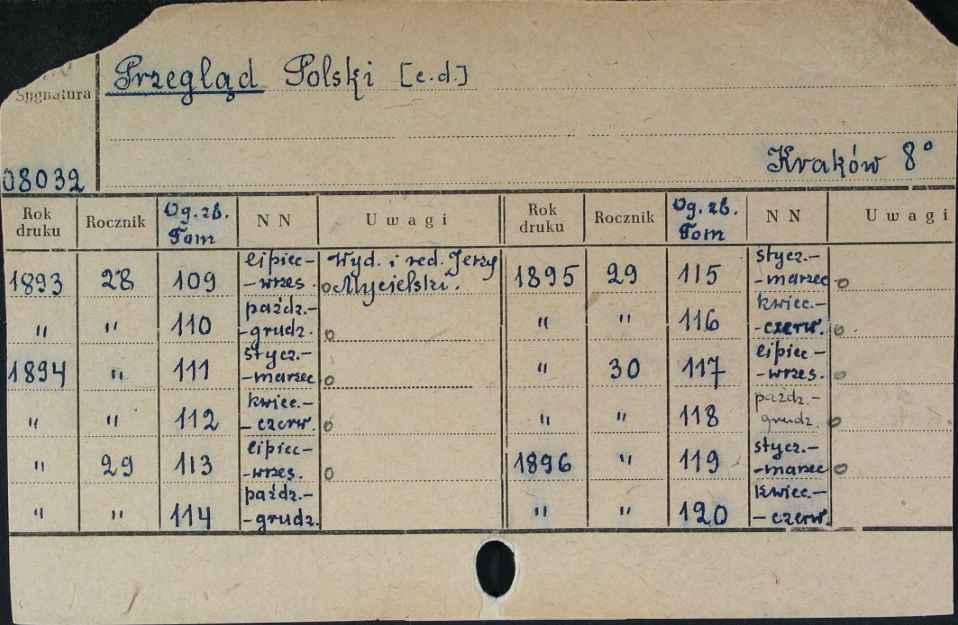 Przegląd Polski [c.d.]
Sygnatura
Kraków 8°
08032
Rok druku Rocznik Og. zb. Tom NN Uwagi Rok druku Rocznik Og. zb. Tom NN Uwagi
1893 28 109 lipiec- -wrzes. Wyd. i red. Jerzy Mycielski. 1895 29 115 stycz.- -marzec
" " 110 paźdz.- -grudz. " " 116 kwiec.- -czerw.
1894 " 111 stycz.- -marzec " 30 117 lipiec- -wrzes.
" " 112 kwiec.- -czerw. " " 118 paźdz.- grudz.
" 29 113 lipiec- -wrzes. 1896 " 119 stycz.- -marzec
" " 114 paźdz.- -grudz. " " 120 kwiec.- -czerw.